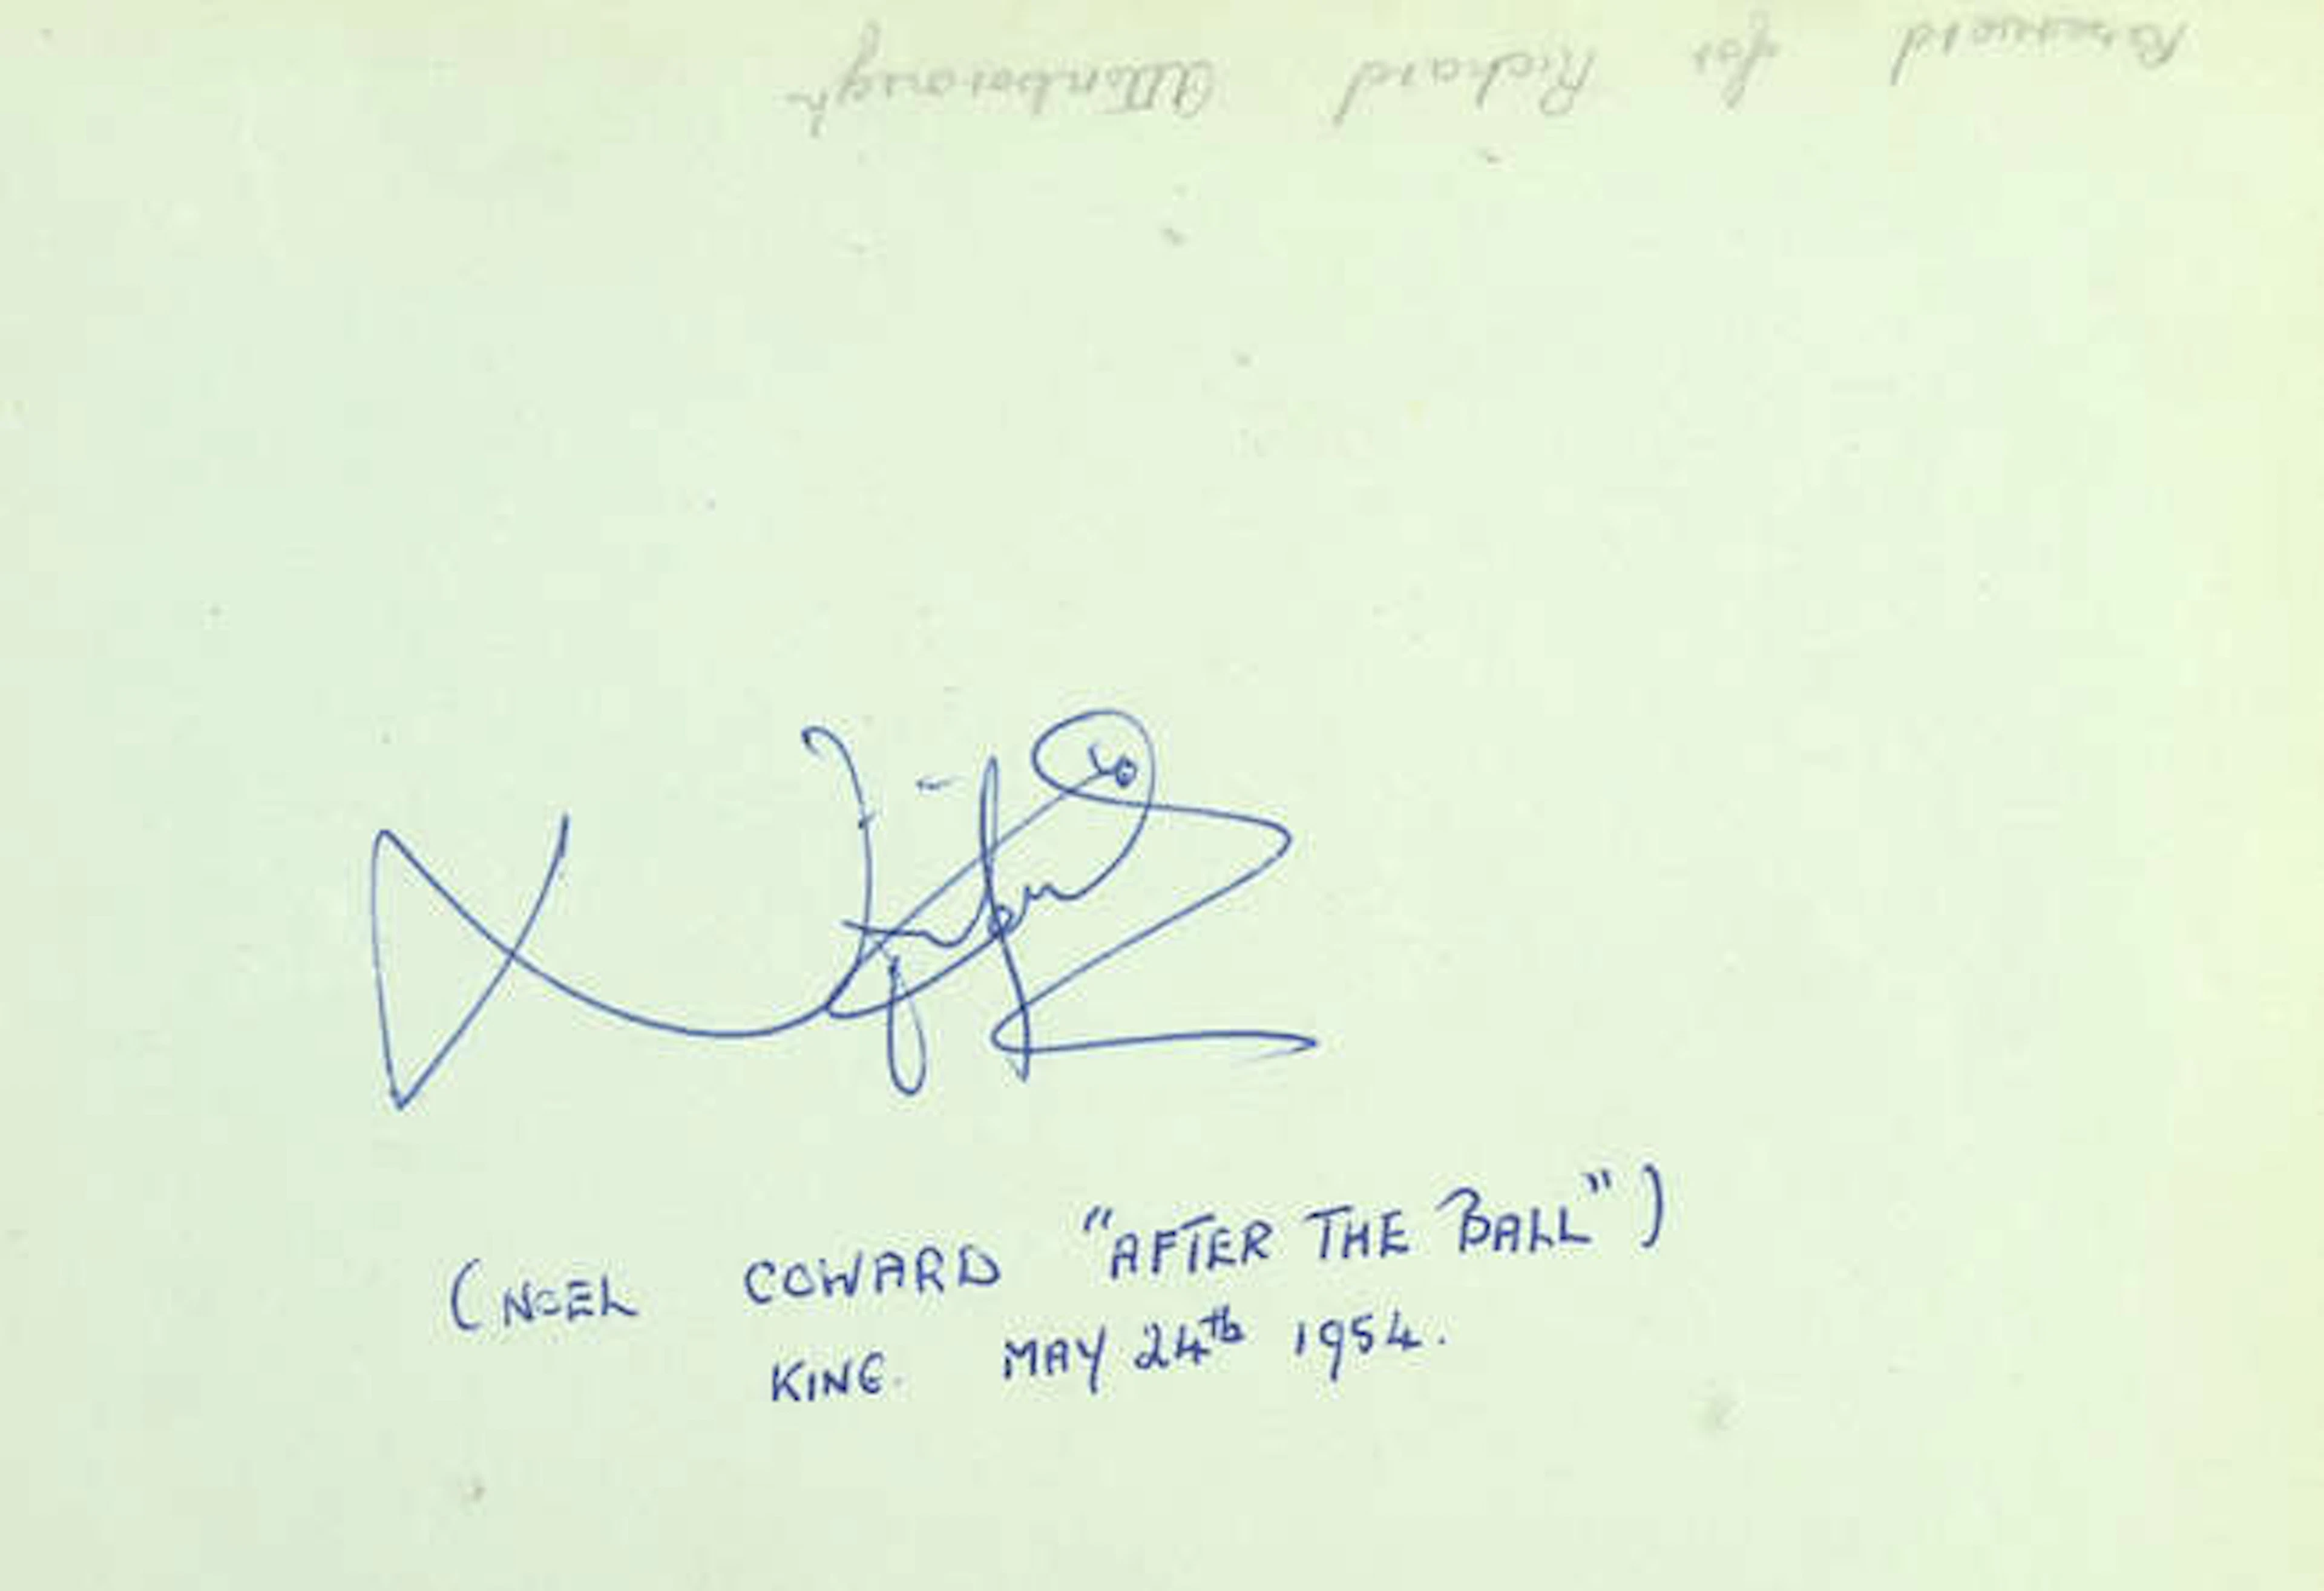 Reserved for Richard Attenborough
(NOEL COWARD "AFTER THE BALL")
KING. MAY 24th 1954.